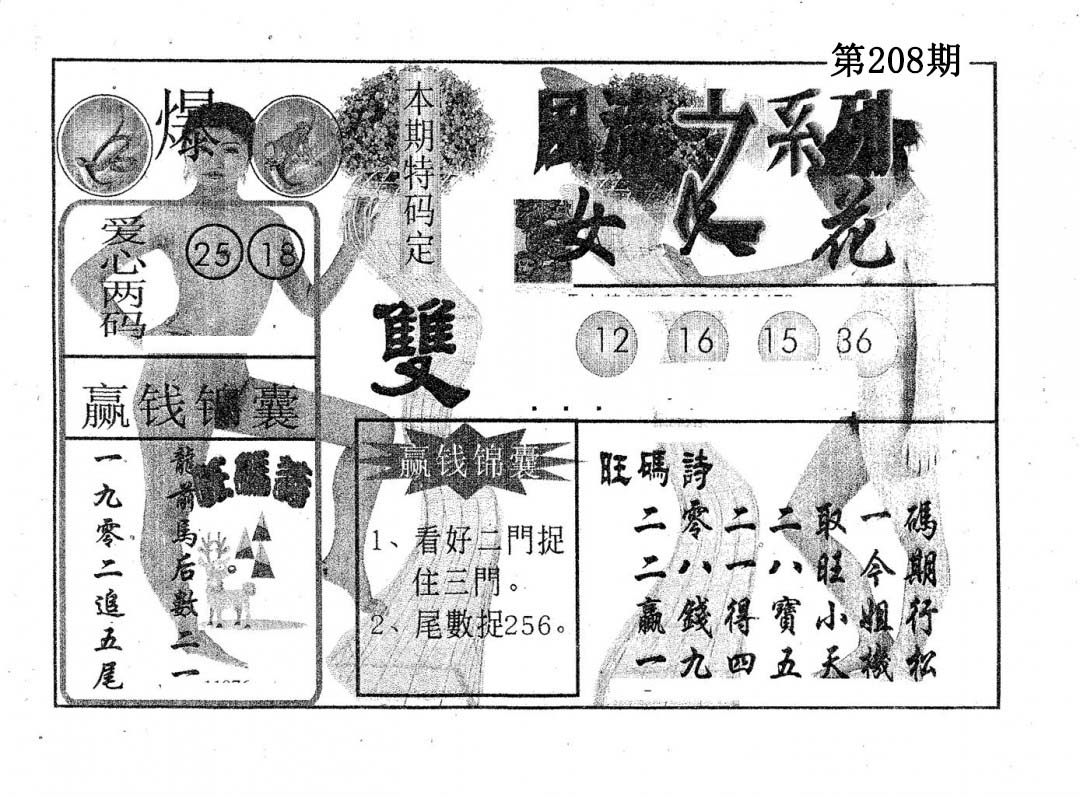 第208期
爆
本期特码定
雙
系列
女人花
爱心两码
25 18
12 16 15 36
赢钱锦囊
龍前馬后數二一
一九零二追五尾
赢钱锦囊
1、看好二門捉
住三門。
2、尾數捉256。
旺碼詩
二零二二取一碼
二八一八旺今期
贏錢得寶小姐行
一九四五天機松